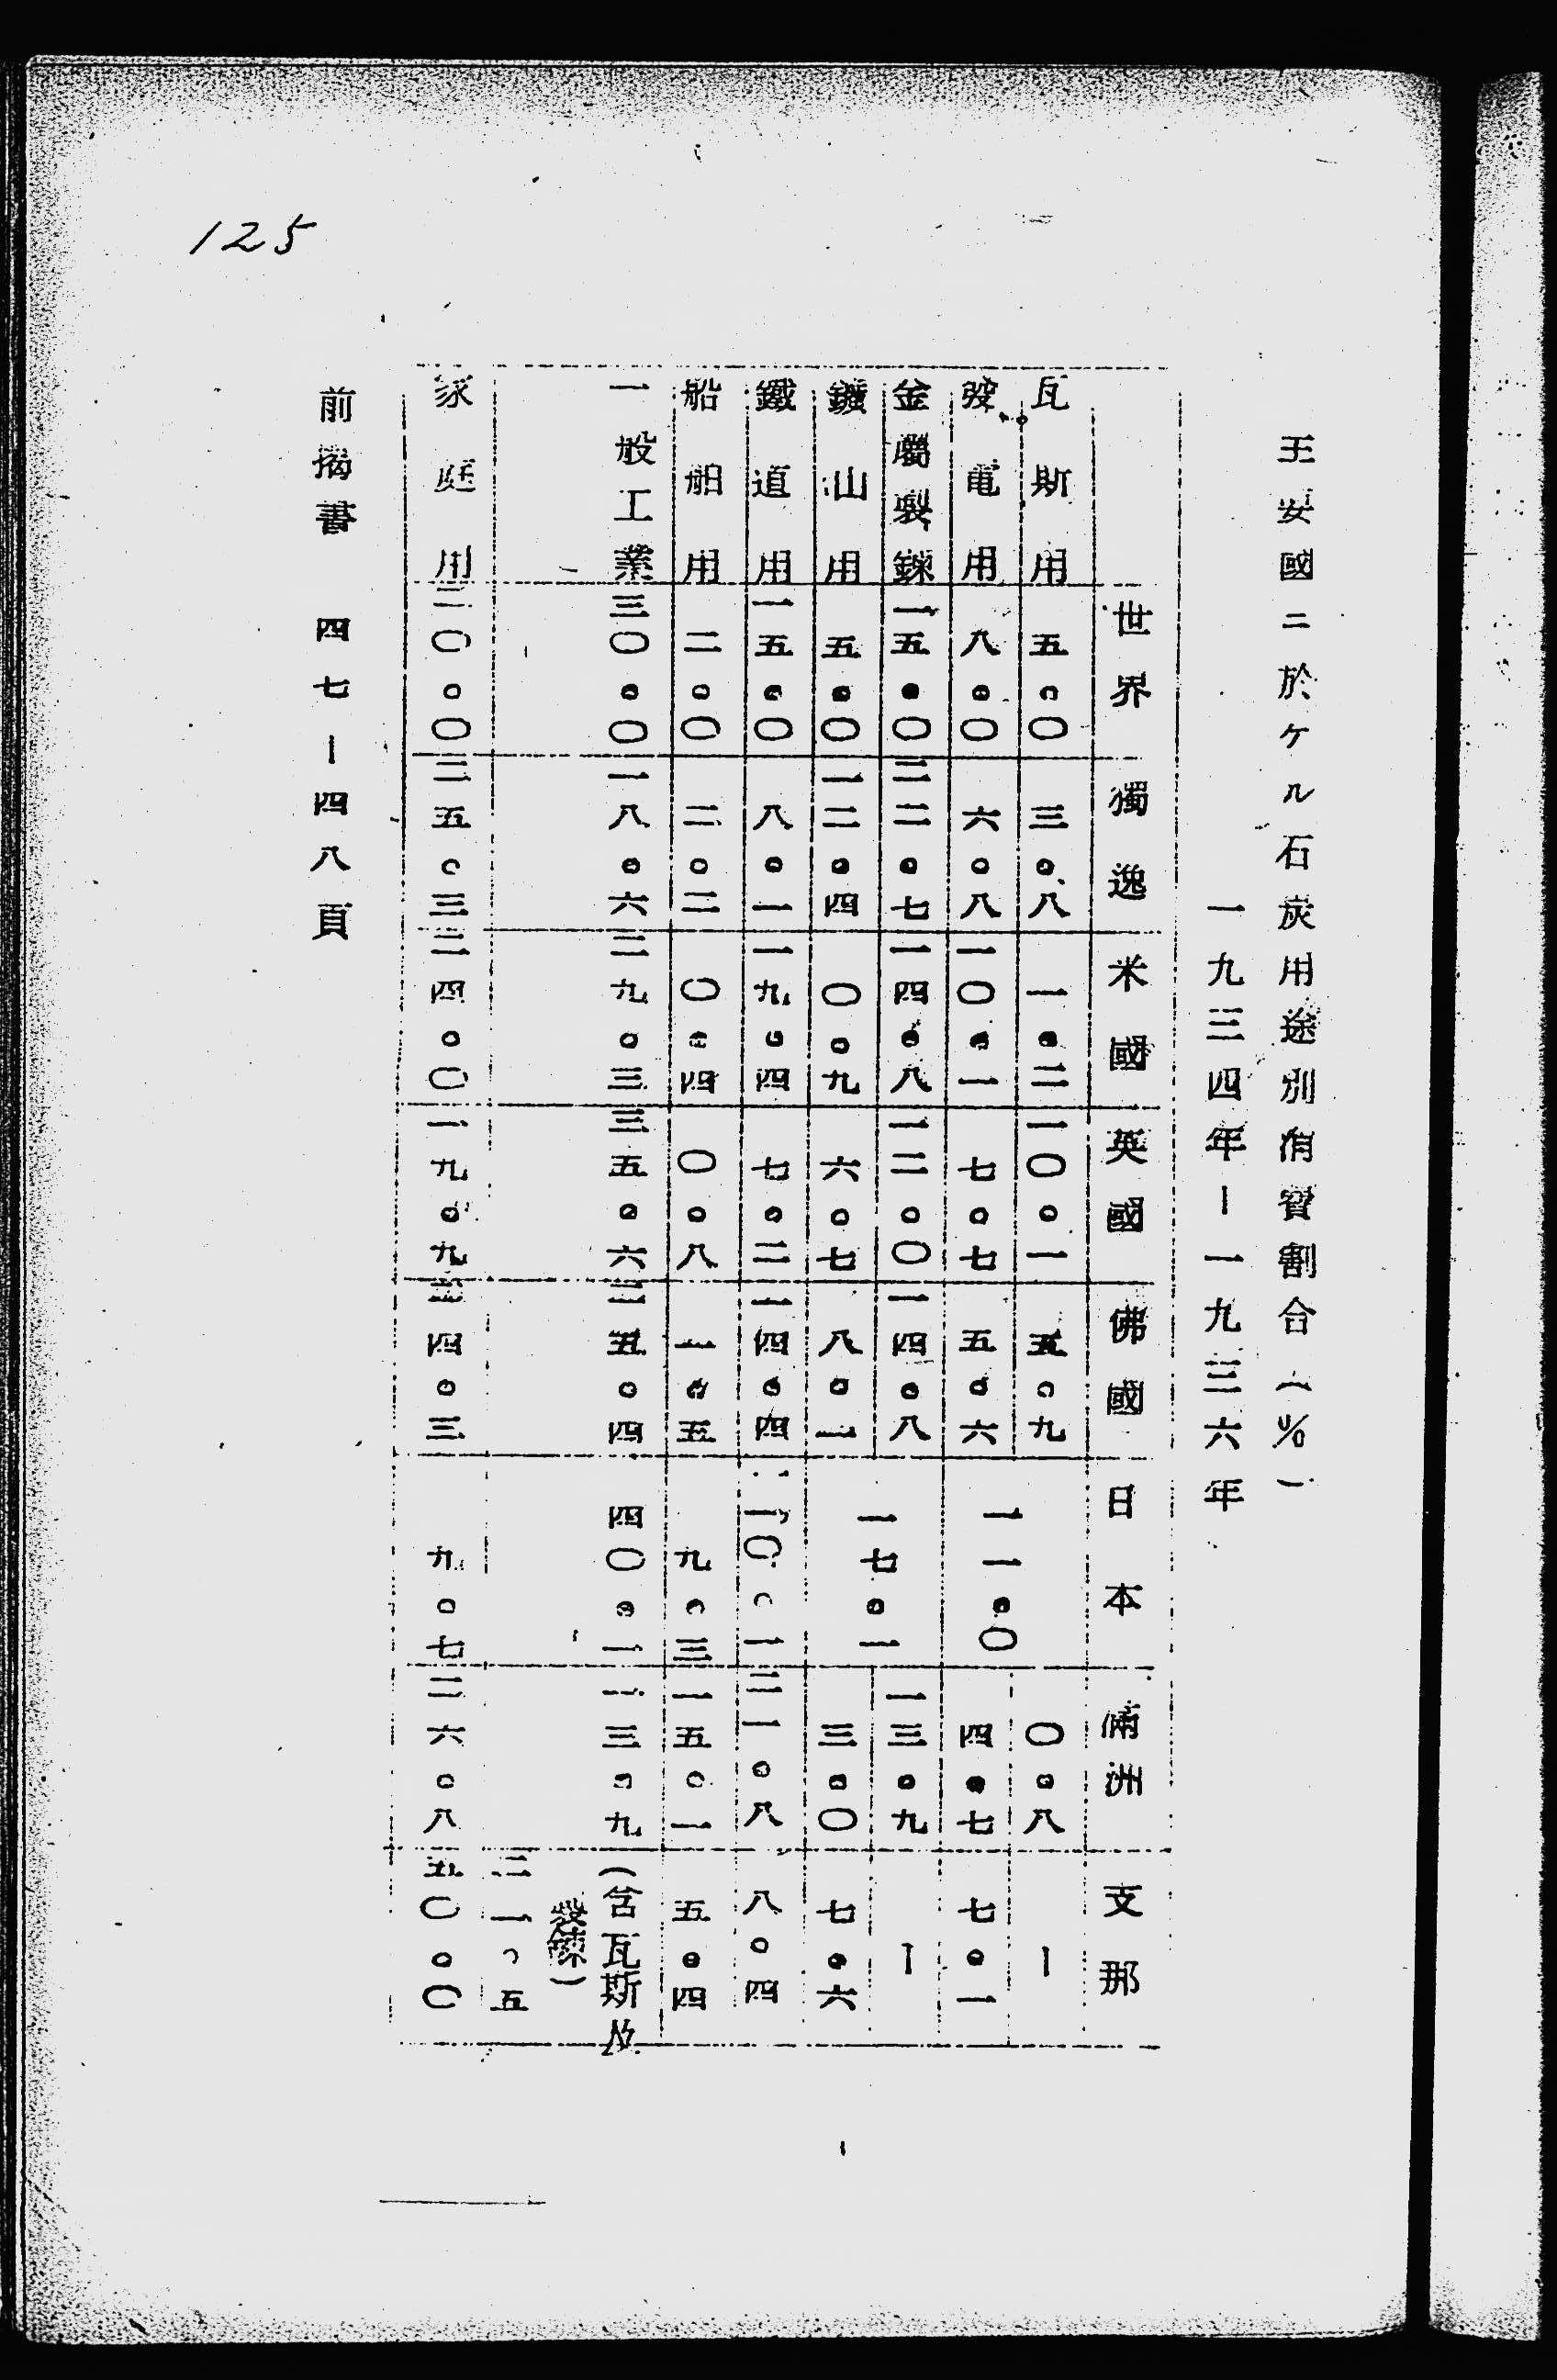 125
主要國ニ於ケル石炭用途別消費割合(%)
一九三四年ー一九三六年
世界 獨逸 米國 英國 佛國 日本 滿洲 支那
瓦斯用 五。〇 三。八 一。二 一〇。一 五。九 〇。八 ー
一一。〇
發電用 八。〇 六。八 一〇。一 七。七 五。六 四。七 七。一
金屬製鍊 一五。〇 二二。七 一四。八 一二。〇 一四。八 一三。九 ー
一七。一
鑛山用 五。〇 一二。四 〇。九 六。七 八。一 三。〇 七。六
鐵道用 一五。〇 八。一 一九。四 七。二 一四。四 一〇。一 二一。八 八。四
船舶用 二。〇 二。二 〇。四 〇。八 一。五 九。三 一五。一 五。四
一般工業 三〇。〇 一八。六 二九。三 三五。六 二五。四 四〇。一 一三。九 (含瓦斯及
製鍊)
二一。五
家庭用 二〇。〇 二五。三 二四。〇 一九。九 二四。三 九。七 二六。八 五〇。〇
前揭書 四七ー四八頁